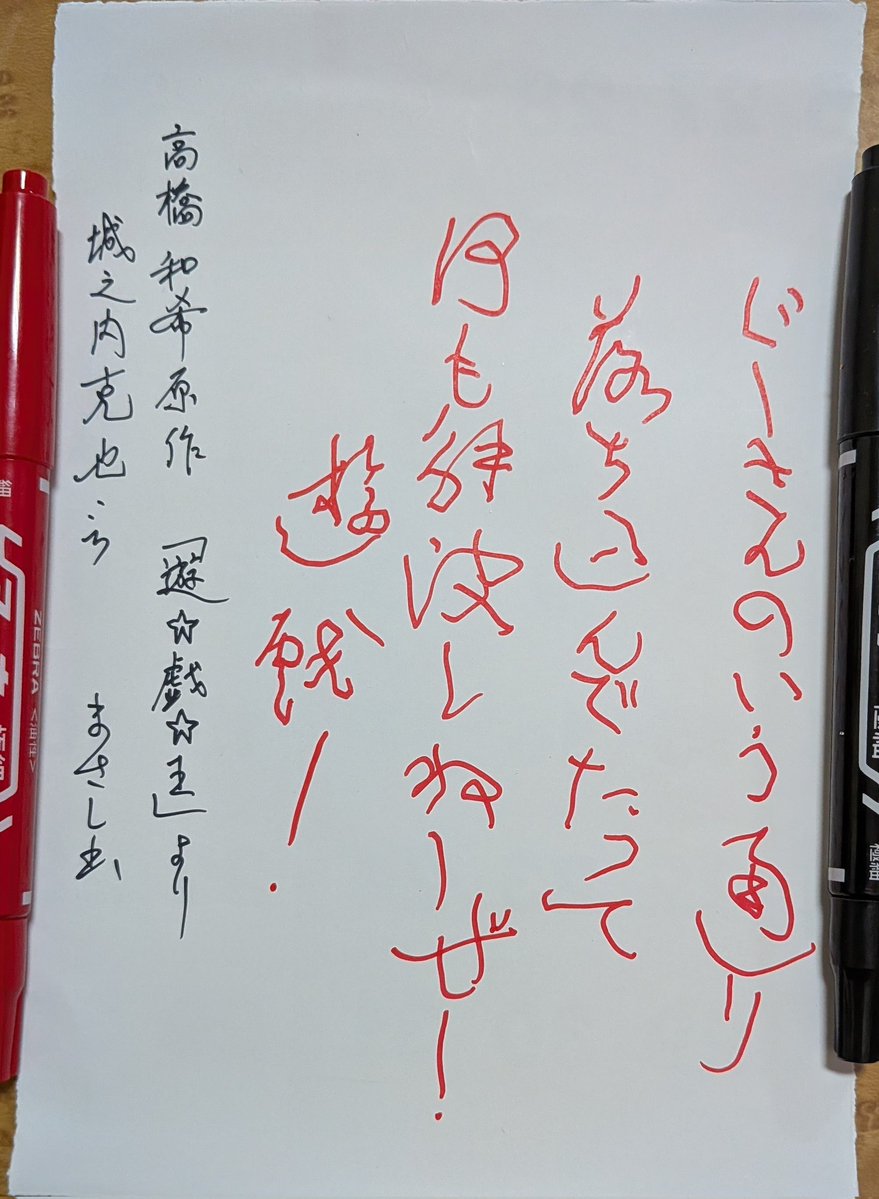 じーさんのいう通り
落ち込んでたって
何も解決しねーぜ!
遊戯!
高橋和希原作 「遊☆戯☆王」より
城之内克也言 まさし書
ZEBRA